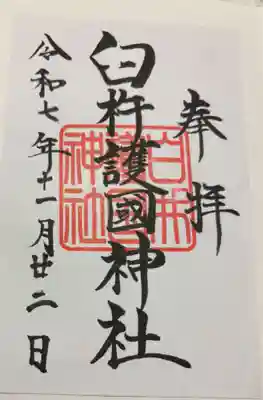 奉拝
臼杵護國神社
令和七年十一月廿二日
臼杵護國神社